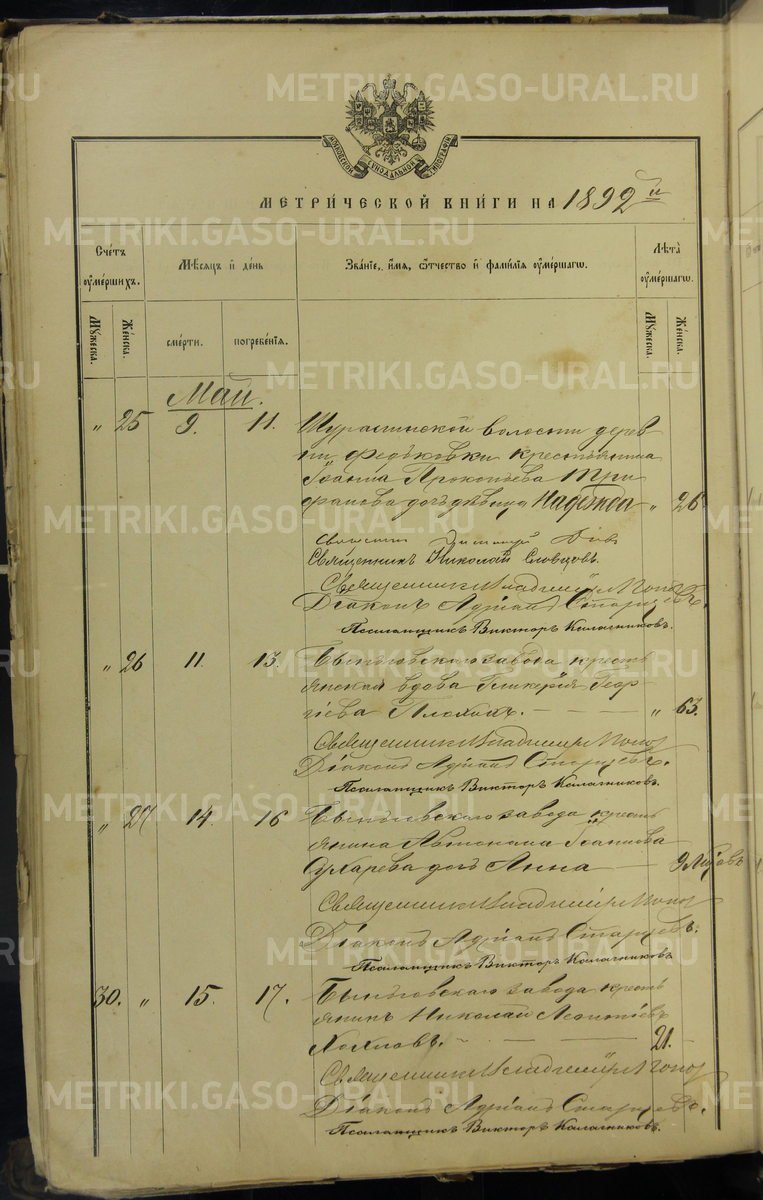 METRIKI.GASO-URAL.RU
МОСКОВСКОЙ СѴНОДАЛЬНОЙ ТИПОГРАФІИ
МЕТРИ́ЧЕСКОЙ КНИ́ГИ НА 1892 й
Сче́тъ ᲂу҆ме́ршихъ.
Мѣ́сяцъ и҆ де́нь
Зва́нїе, и҆́мя, ѻ҆́тчество и҆ фамі́лїя ᲂу҆ме́ршагѡ.
Лѣ̑та ᲂу҆ме́ршагѡ.
Мꙋ́жеска.
Же́нска.
сме́рти.
погребе́нїя.
Мꙋ́жеска.
Же́нска.
Май.
" 25 9. 11. волости дерев
ни Федьковки крестьянина
Іоанна Прокопьева Три
фанова дочь дѣвица Надежда " 26
Священникъ Николай Словцовъ.
Священникъ Владиміръ Попов
Діаконъ Адріанъ Старцевъ.
Псаломщикъ Викторъ Калачниковъ.
" 26 11. 13. Быньговскаго завода кресть
янская вдова Гликерія Геор-
гіева Плохихъ. — — — " 63.
Священникъ Владиміръ Попов
Діаконъ Адріанъ Старцевъ.
Псаломщикъ Викторъ Калачниковъ.
" 27 14. 16 Быньговскаго завода кресть
янина Автонома Іоаннова
Сухарева дочь Анна — 9 мѣс
Священникъ Владиміръ Попов
Діаконъ Адріанъ Старцевъ.
Псаломщикъ Викторъ Калачниковъ
30. " 15. 17. Быньговскаго завода кресть
янинъ Николай Леонтіевъ
Хохловъ. — — — 21.
Священникъ Владиміръ Попов
Діаконъ Адріанъ Старцевъ.
Псаломщикъ Викторъ Калачниковъ.